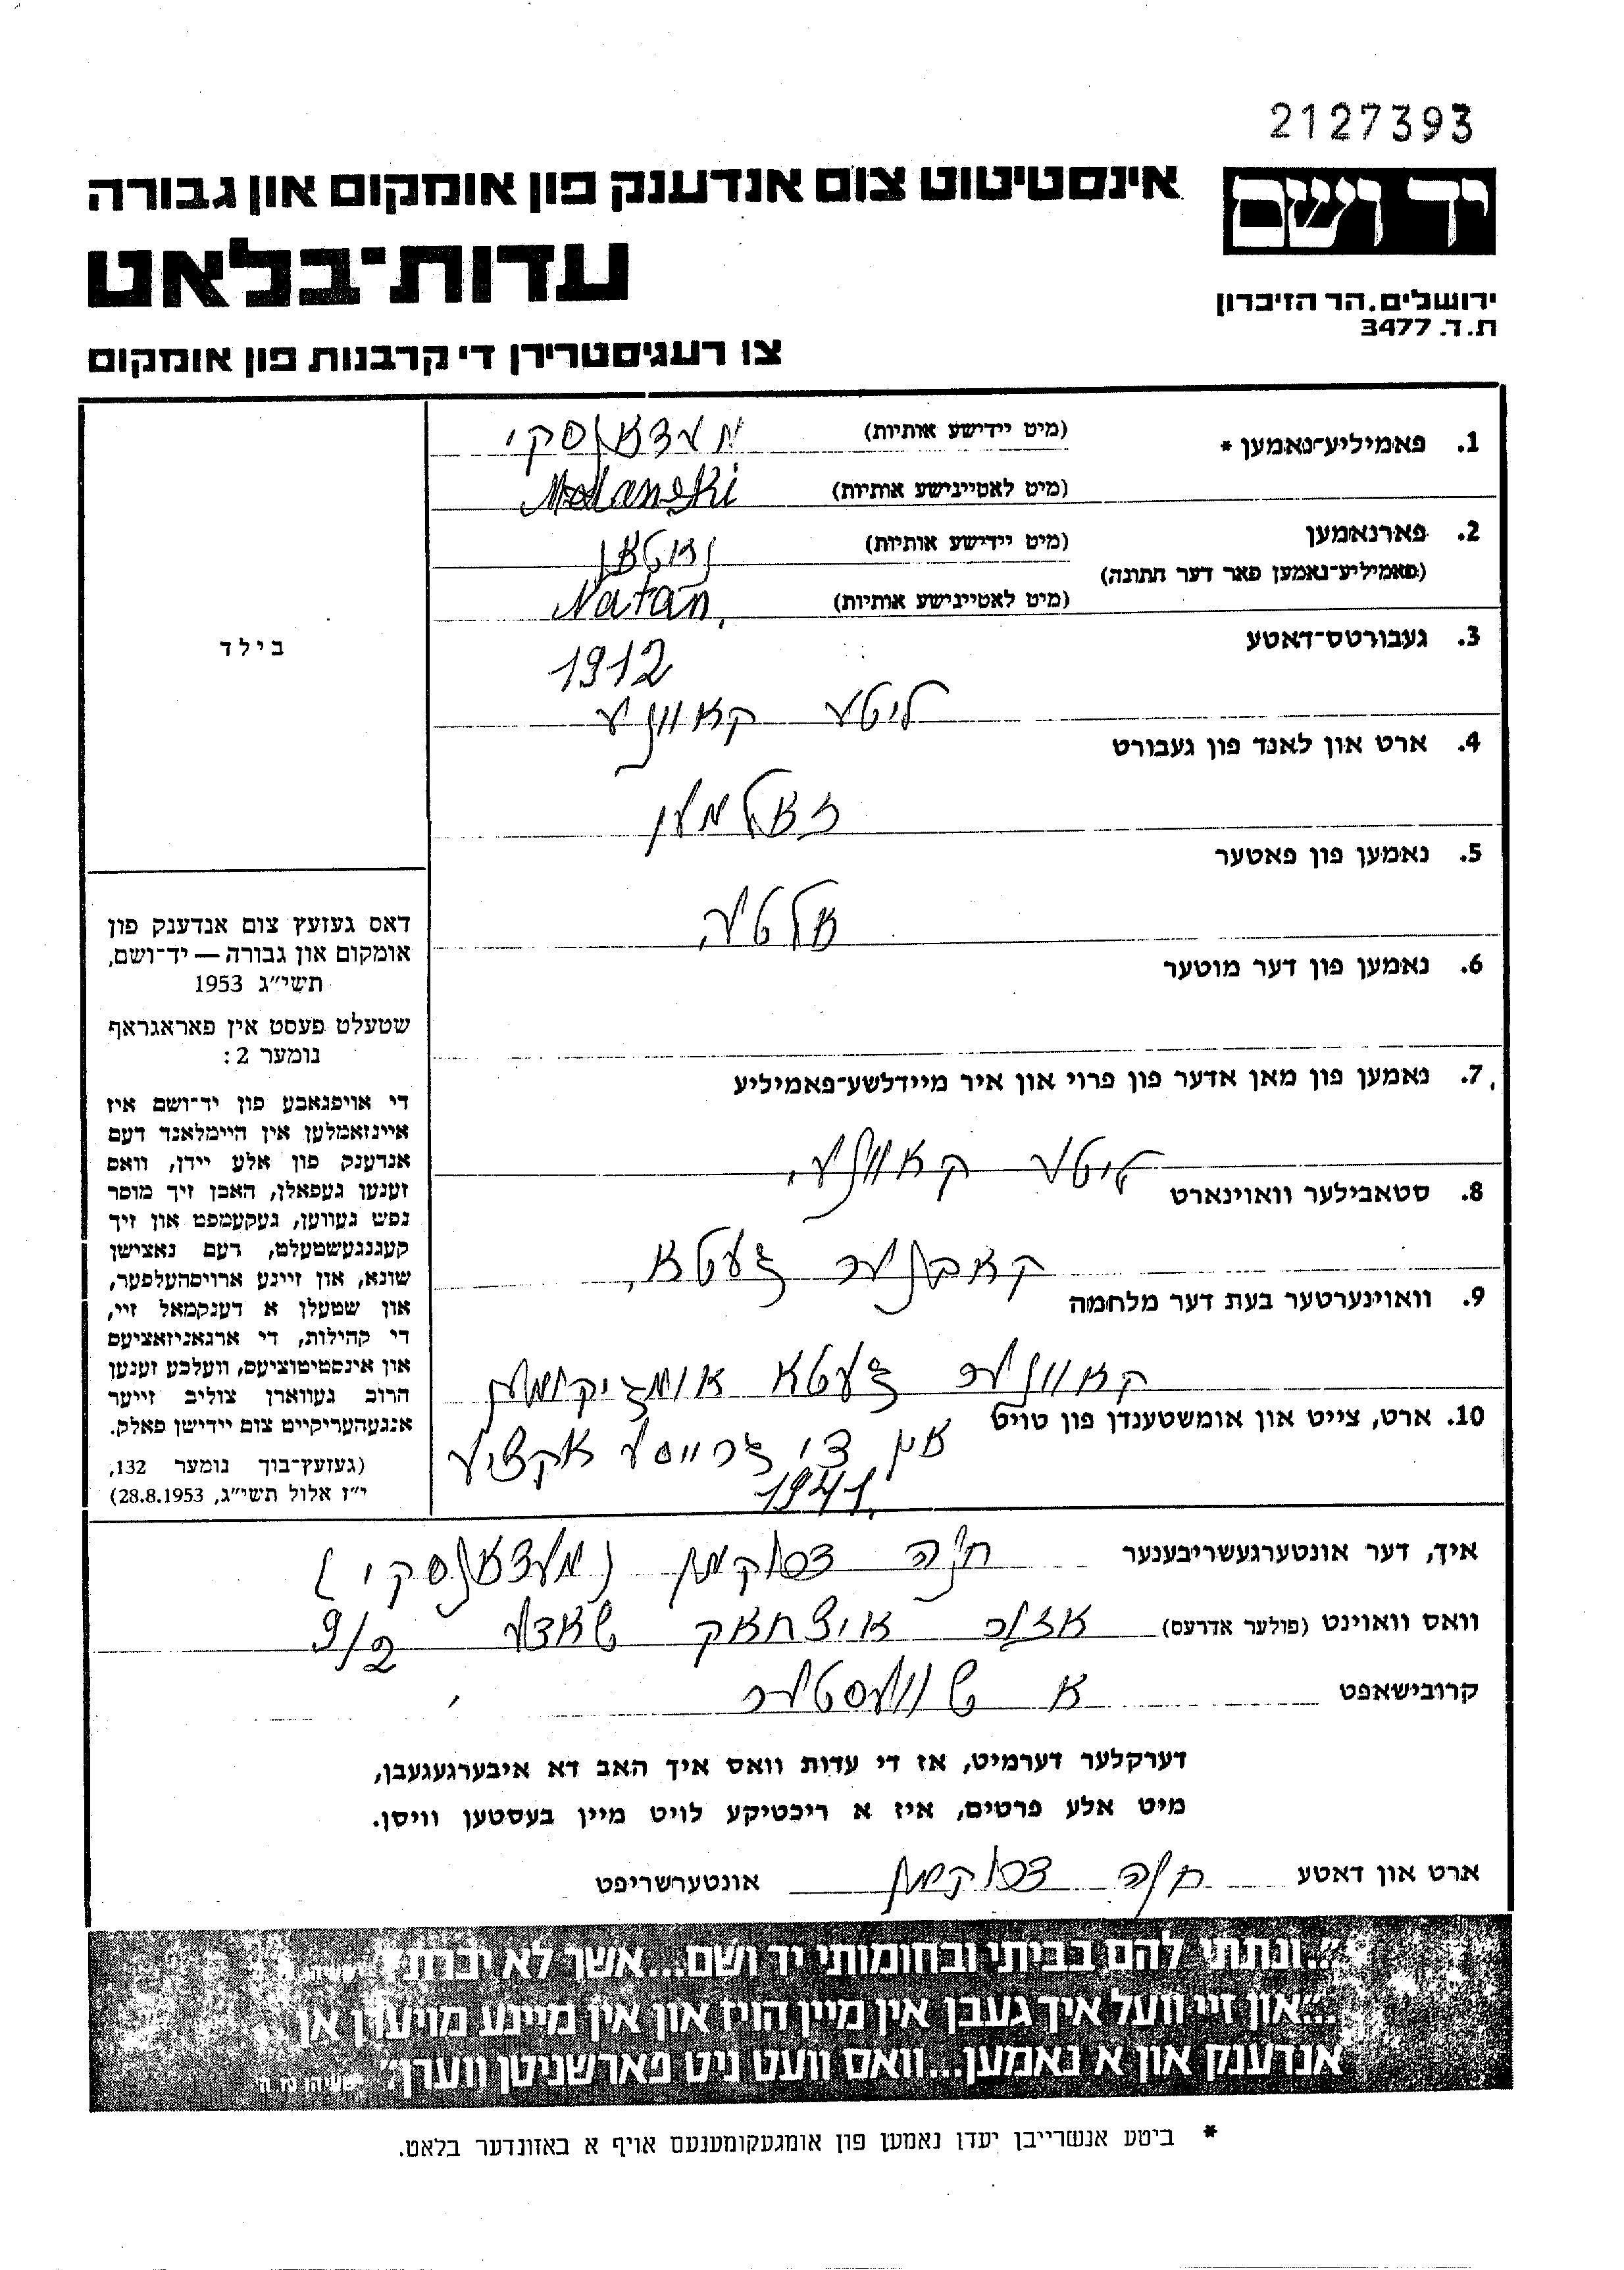 2127393
יד ושם
אינסטיטוט צום אנדענק פון אומקום און גבורה
עדות־בלאט
ירושלים. הר הזיכרון
ת.ד. 3477
צו רעגיסטרירן די קרבנות פון אומקום
1. פאמיליע־נאמען * (מיט יידישע אותיות) מעדאנסקי
(מיט לאטיינישע אותיות)
2. פארנאמען (מיט יידישע אותיות) נאטאן
(פאמיליע־נאמען פאר דער חתונה)
(מיט לאטיינישע אותיות) Natan,
3. געבורטס־דאטע 1912
ליטע קאוונע
4. ארט און לאנד פון געבורט
זאלמען
5. נאמען פון פאטער
אלטע
6. נאמען פון דער מוטער
7. נאמען פון מאן אדער פון פרוי און איר מיידלשע־פאמיליע
ליטע קאוונע.
8. סטאבילער וואוינארט
קאבנער געטא,
9. וואוינערטער בעת דער מלחמה
קאוונער געטא אומגיקומען
10. ארט, צייט און אומשטענדן פון טויט
אין די גרייסע אקציע
1941,
בילד
דאס געזעץ צום אנדענק פון
אומקום און גבורה — יד־ושם,
תשי״ג 1953
שטעלט פעסט אין פאראגראף
נומער 2:
די אויפגאבע פון יד־ושם איז
איינזאמלען אין היימלאנד דעם
אנדענק פון אלע יידן, וואס
זענען געפאלן, האבן זיך מוסר
נפש געווען, געקעמפט און זיך
קעגנגעשטעלט, דעם נאצישן
שונא, און זיינע ארויסהעלפער,
און שטעלן א דענקמאל זיי,
די קהילות, די ארגאניזאציעס
און אינסטיטוציעס, וועלכע זענען
הרוב געווארן צוליב זייער
אנגעהעריקייט צום יידישן פאלק.
(געזעץ־בוך נומער 132,
י״ז אלול תשי״ג, 28.8.1953)
איך, דער אונטערגעשריבענער חנה (מעדאנסקי)
וואס וואוינט (פולער אדרעס) 9/2
קרובישאפט א שוועסטער
דערקלער דערמיט, אז די עדות וואס איך האב דא איבערגעגעבן,
מיט אלע פרטים, איז א ריכטיקע לויט מיין בעסטען וויסן.
ארט און דאטע חנה אונטערשריפט
״...ונתתי להם בביתי ובחומותי יד ושם...אשר לא יכרת״
״...און זיי וועל איך געבן אין מיין הויז און אין מיינע מויערן אן
אנדענק און א נאמען...וואס וועט ניט פארשניטן ווערן״ ישעיהו נו ה
* ביטע אנשרייבן יעדן נאמען פון אומגעקומענעם אויף א באזונדער בלאט.